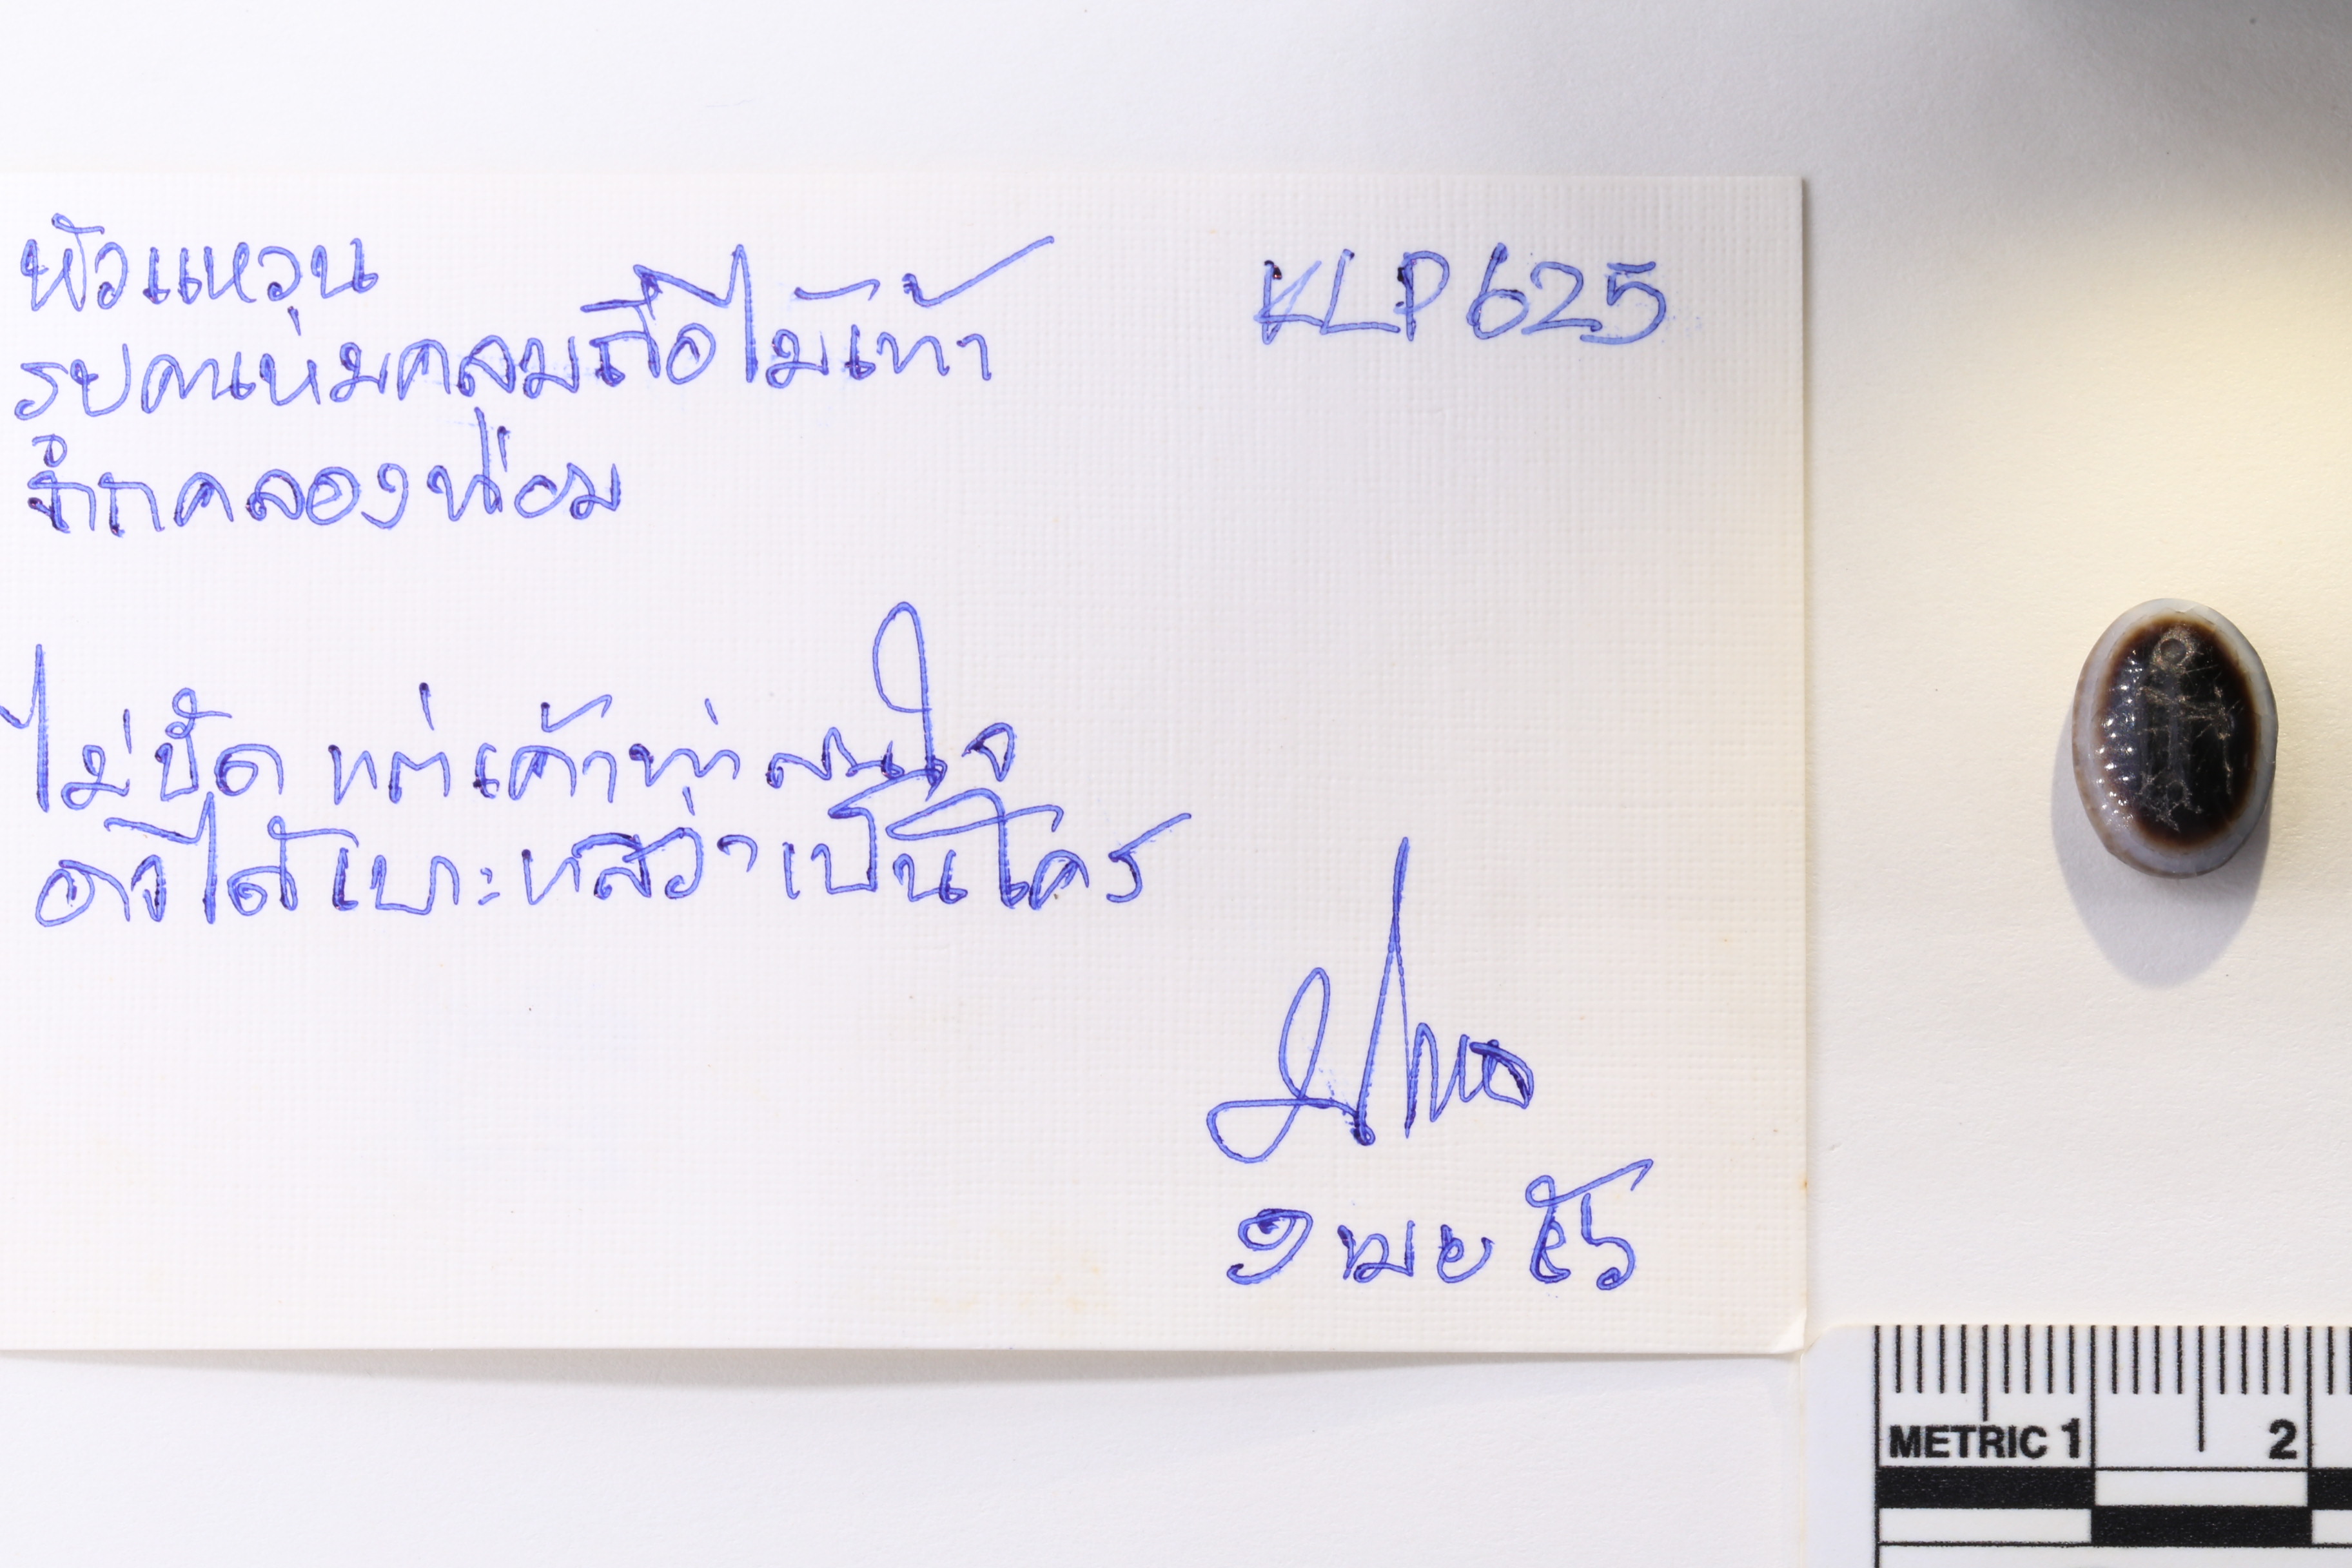 หัวแหวน
KLP 625
รูปคนห่มคลุมถือไม้เท้า
จากคลองท่อม
ไม่ชัด แต่เค้าท่าสนใจ
อาจได้เบาะแสว่าเป็นใคร
๑ เมย ๕๖
METRIC 1 2